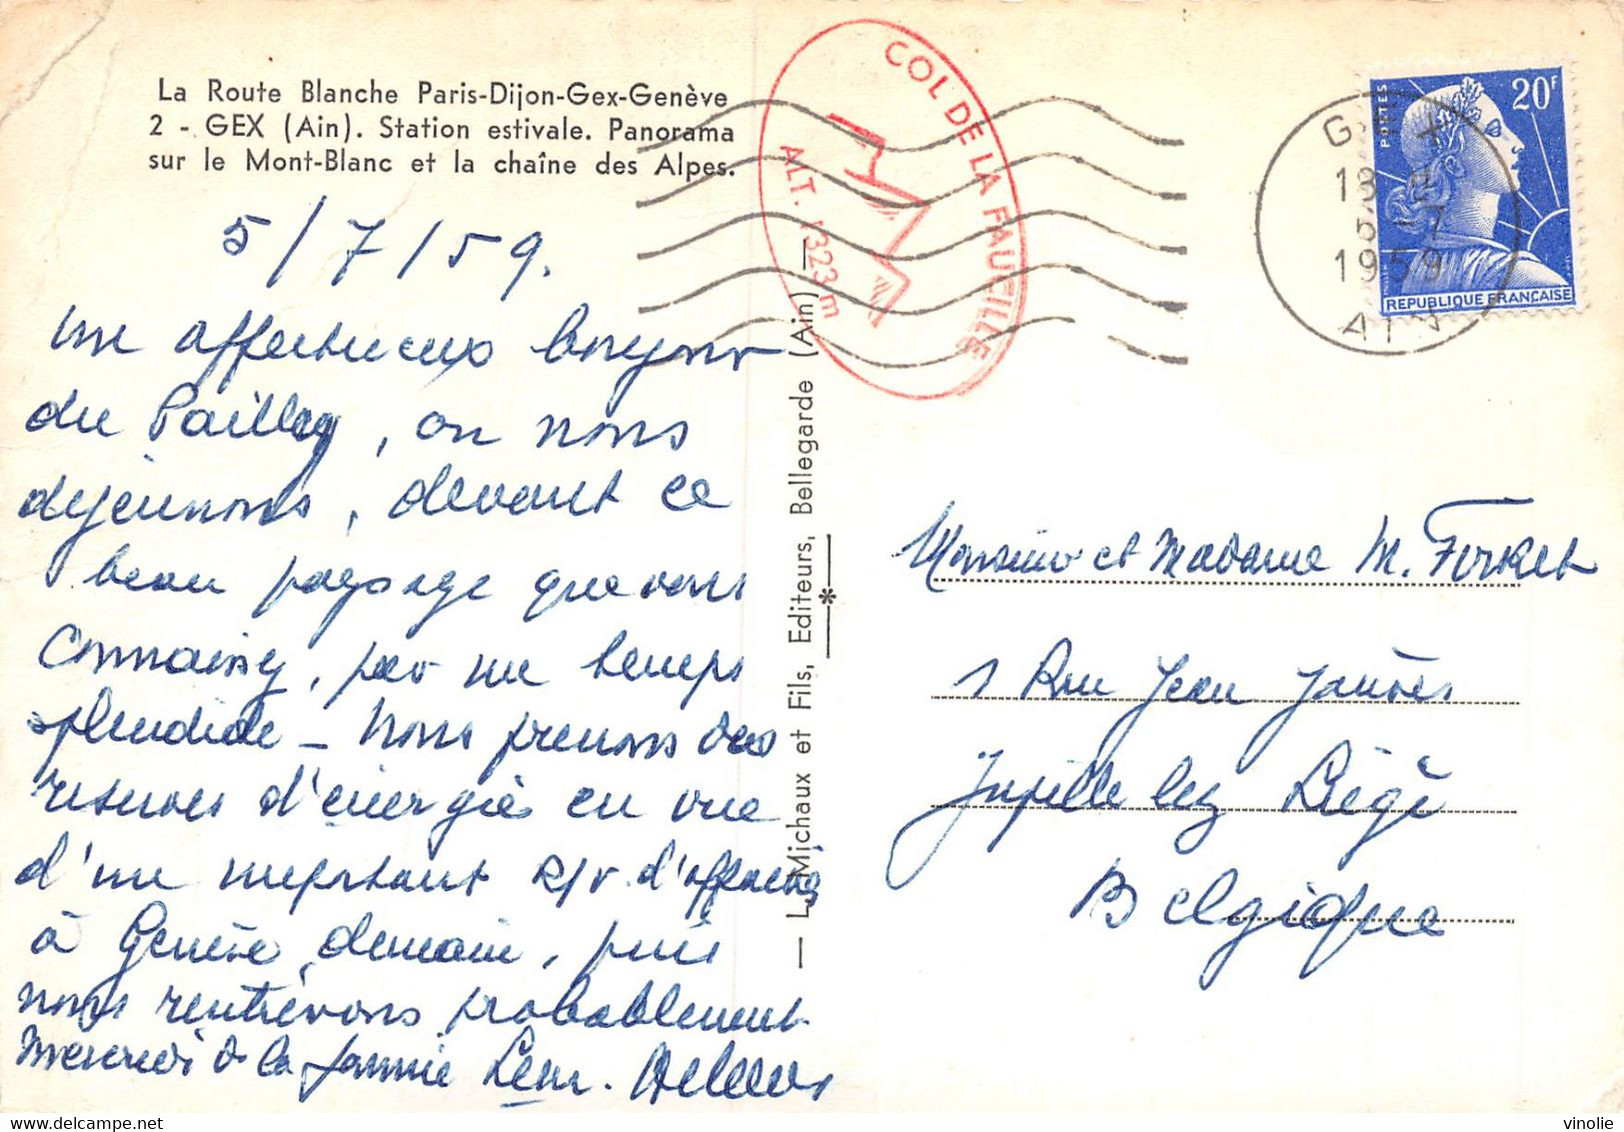 La Route Blanche Paris-Dijon-Gex-Genève
2 - GEX (Ain). Station estivale. Panorama
sur le Mont-Blanc et la chaîne des Alpes.
5/7/59.
un affectueux bonjour
du Pailley, où nous
déjeunons, devant ce
beau paysage que vous
connaissez, par un temps
splendide — Nous prenons des
réserves d'énergie en vue
d'un important R/V d'affaires
à Genève demain, puis
nous rentrerons probablement
mercredi
L. Michaux et Fils, Editeurs, Bellegarde (Ain) —
*
COL DE LA FAUCILLE
ALT. 1323 m
GEX
18 H
5 - 7
1959
AIN
POSTES
20F
REPUBLIQUE FRANÇAISE
Monsieur et Madame M. Firket
1 Rue Jean Jaurès
Jupille lez Liège
Belgique
vinolie